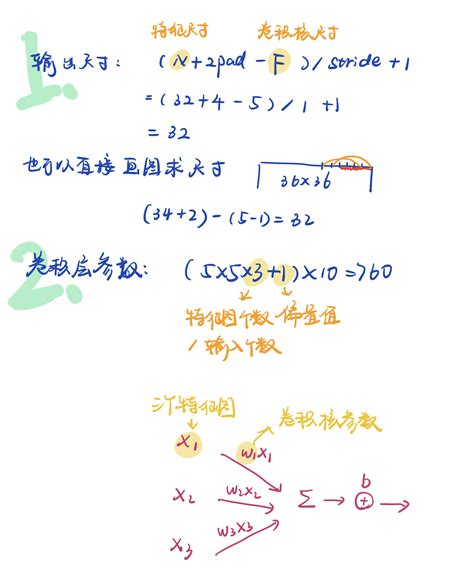 特征尺寸 卷积核尺寸
1. 输出尺寸: (N+2pad-F)/stride+1
=(32+4-5)/1+1
=32
也可以直接画图求尺寸
36×36
(34+2)-(5-1)=32
2. 卷积层参数: (5×5×3+1)×10=760
特征图个数 偏置值
/输入个数
三个特征图 卷积核参数
X₁ w₁X₁
X₂ w₂X₂ Σ → ⊕ → b
X₃ w₃X₃